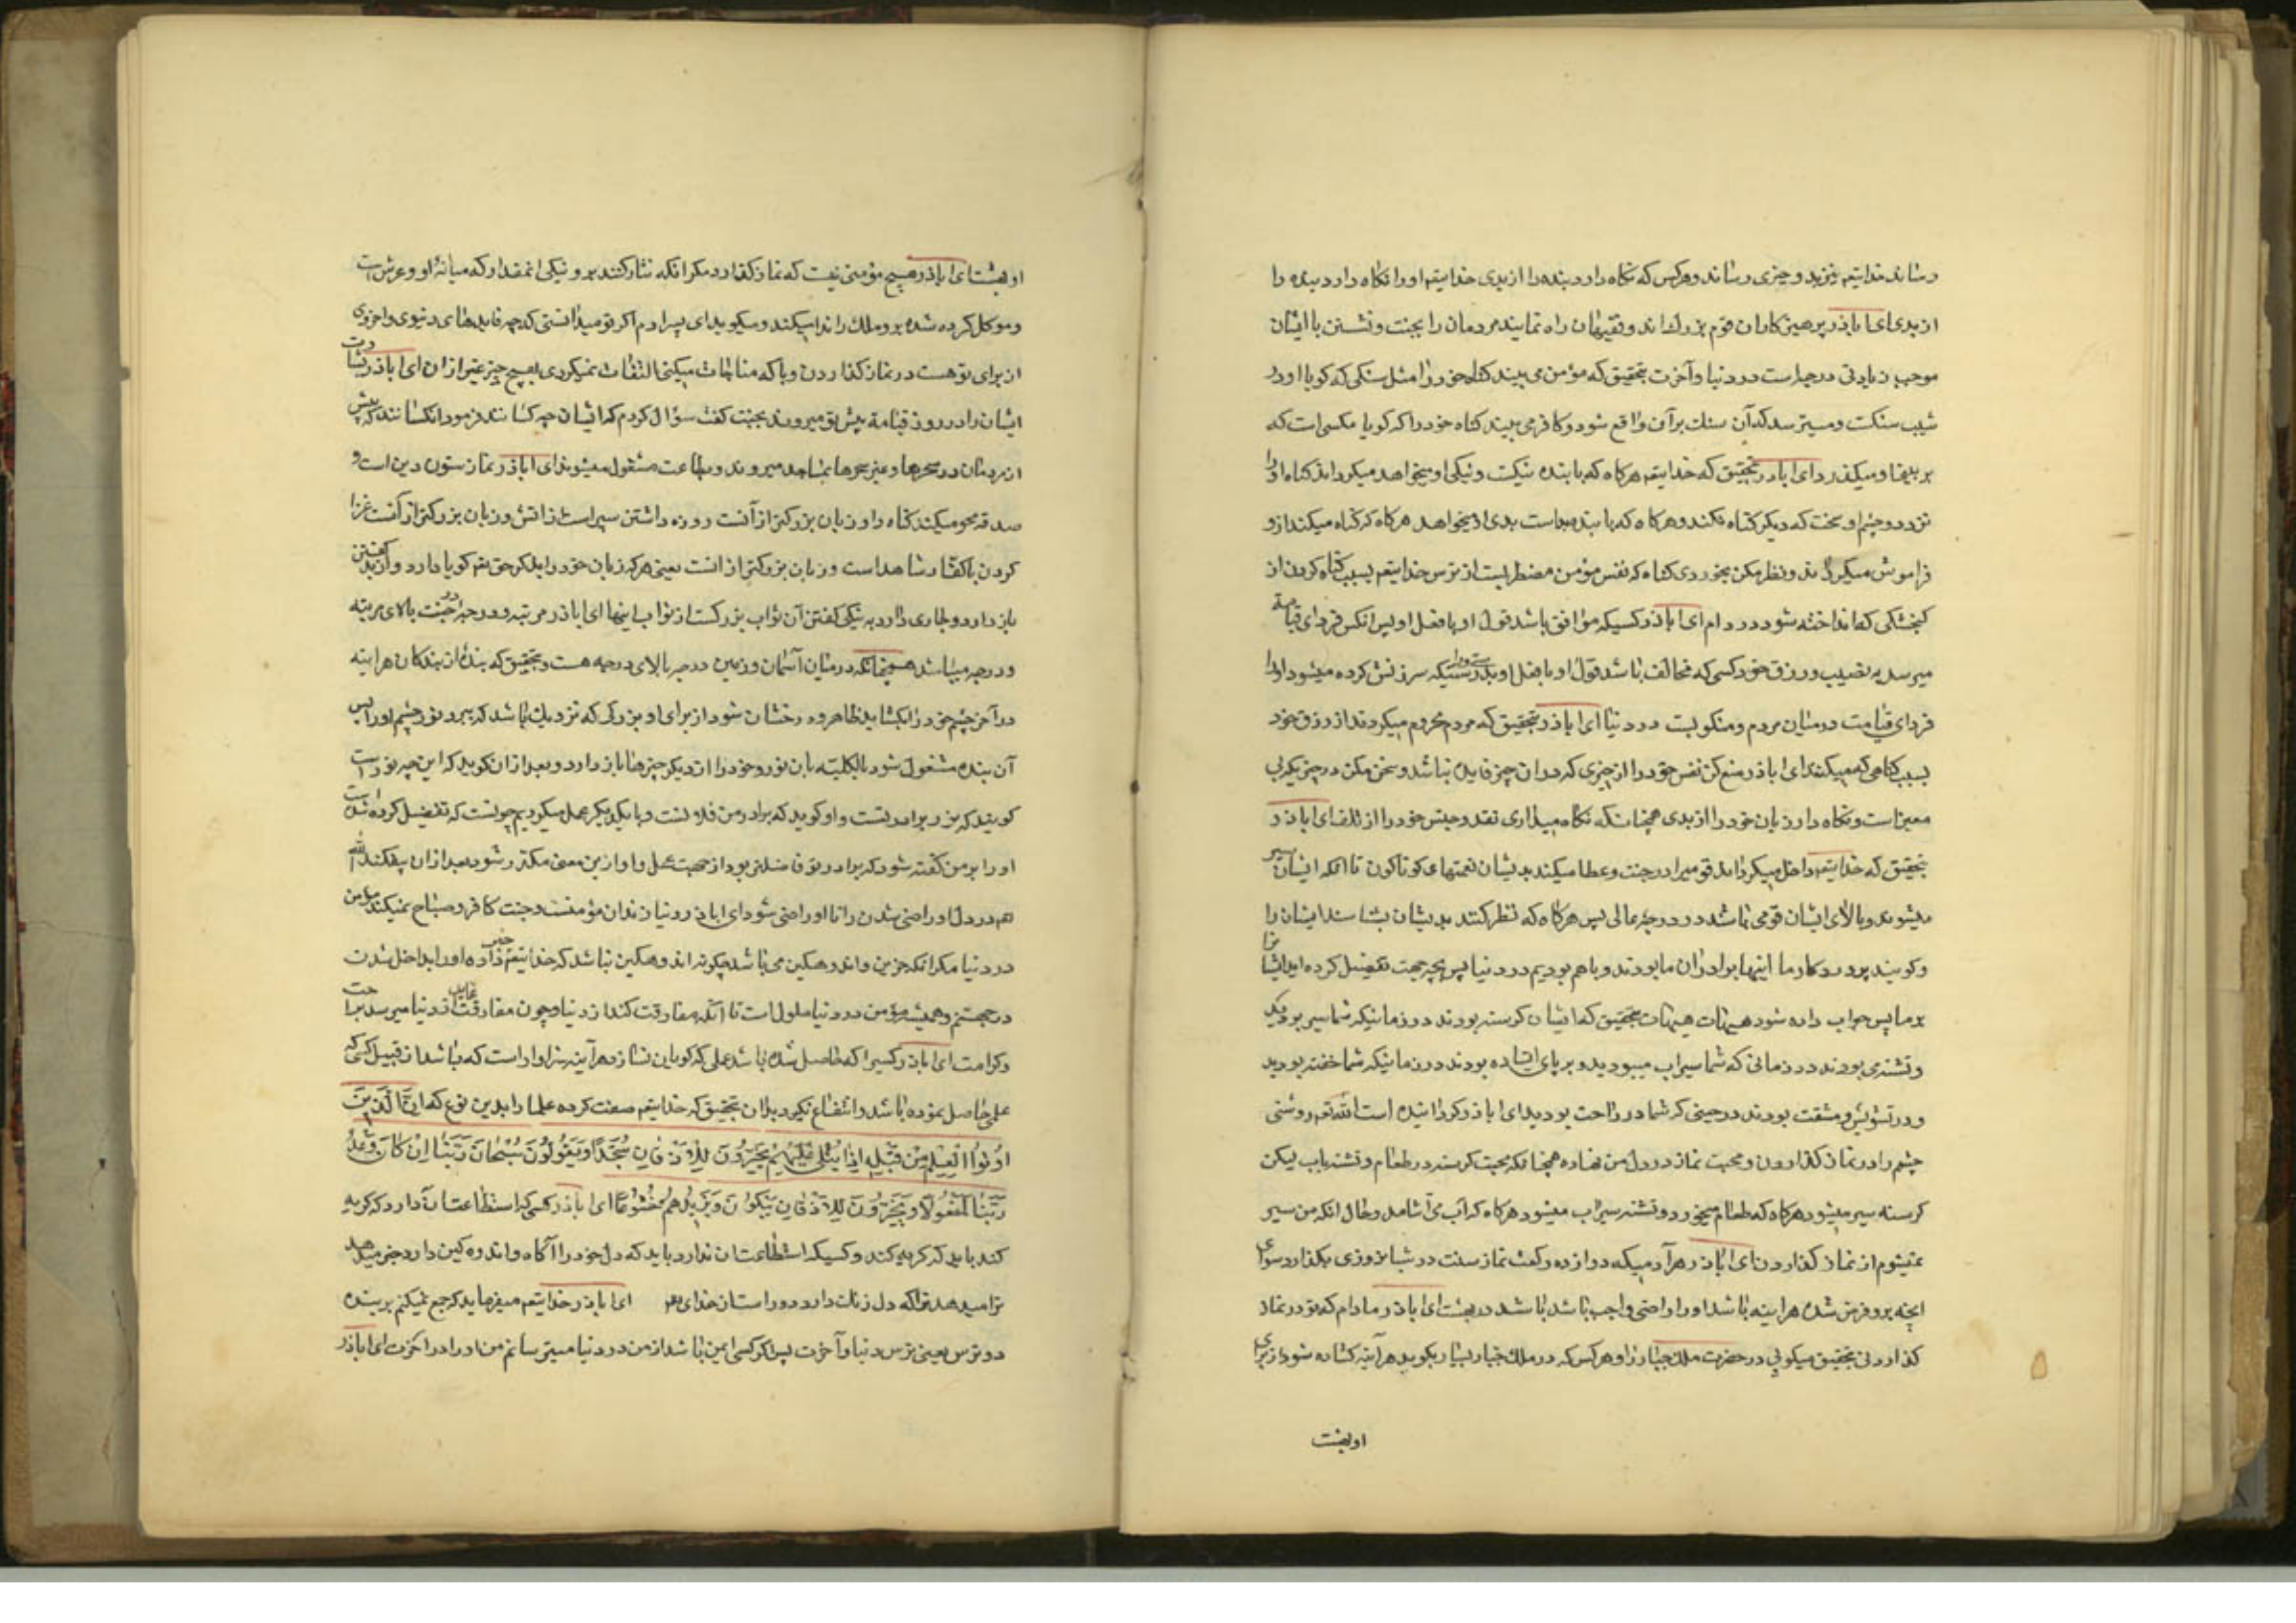 رساند خدایتعم نیز بدو چیزی رساند و هرکس که نکاه دارد بنده را از بدی خدایتعم او را نکاه دارد بنده را
از بدی ای اباذر پرهیز کاران قوم بزرك اند و فقیهان راه نمایند مردمان را بجنت و نشستن با ایشان
موجب زیادتی درجه است در دنیا و آخرت بتحقیق که مؤمن می بیند کناه خود را مثل سنکی که کویا او در
شیب سنکست و میترسد که آن سنك بر آن واقع شود و کافر می بیند کناه خود را که کویا مکسی است که
بر بینی او میکذرد ای اباذر بتحقیق که خدایتعم هرکاه که با بنده نیکست و نیکی او میخواهد میکرداند کناه او را
نزد دو چشم او سخت که دیکر کناه نکند و هرکاه که با بنده بد است بدی او میخواهد هرکاه که کناه میکند ازو
فراموش میکرداند و نظر مکن بخوردی کناه که نفس مؤمن مضطربست از ترس خدایتعم بسبب کناه کردن از
کنجشکی که انداخته شود در دام ای اباذر کسیکه موافق باشد قول او با فعل او پس انکس فردای قیامة
میرسد به نصیب و رزق خود کسی که مخالف باشد قول او با فعل او بدرستیکه سرزنش کرده میشود او را
فردای قیامت در میان مردم و منکوبست در دنیا ای اباذر بتحقیق که مردم محروم میکردند از رزق خود
بسبب کناهی که میکند ای اباذر منع کن نفس خود را از چیزی که در ان چیز فایده نباشد و سخن مکن در چیزیکه بی
معین است و نکاه دار زبان خود را از بدی همچنانکه نکاه میداری نقد و جنس خود را از تلف ای اباذر
بتحقیق که خدایتعم داخل میکرداند قومیرا در جنت و عطا میکند بدیشان نعمتهای کوناکون تا انکه ایشان سیر
میشوند و بالای ایشان قومی باشد در درجهٔ عالی پس هرکاه که نظر کنند بدیشان بشناسند ایشان را
و کویند پروردکار ما اینها برادران ما بودند و باهم بودیم در دنیا پس بچه جهت تفضیل کرده ایشانرا
بر ما پس جواب داده شود هیهات هیهات بتحقیق که ایشان کرسنه بودند در زمانیکه شما سیر بودید
و تشنه می بودند در زمانی که شما سیراب میبودید و بر پای ایستاده بودند در زمانیکه شما خفته بودید
و در تشویش و مشقت بودند در حینی که شما در راحت بودید ای اباذر کردانیده است الله تعم روشنی
چشم را در نماز کذاردن و محبت نماز در دل من نهاده همچنانکه محبت کرسنه در طعام و تشنه باب لیکن
کرسنه سیر میشود هرکاه که طعام میخورد و تشنه سیراب میشود هرکاه که آب می آشامد و حال انکه من سیر
نمیشوم از نماز کذاردن ای اباذر هر آدمیکه دوازده رکعت نماز سنت در شبانروزی بکذارد سوای
انچه برو فرض شده هراینه باشد او را واجب باشد باشد در بهشت ای اباذر مادام که تو در نماز
کذاردنی بتحقیق میکوبی در حضرت ملك جبار را و هرکس که در ملك جبار بسیار بکوبد هرآینه کشاده شود از برای
اوبهشت
او بهشت ای اباذر هیچ مؤمنی نیست که نماز کذارد مکر انکه نثار کنند برو نیکی انمقدار که میانهٔ او و عرش است
و موکل کرده شده برو ملك را ندا میکند و میکوید ای پسر ادم اکر تو میدانستی که چه فایدهای دنیوی و اخروی
از برای تو هست در نماز کذاردن و با که مناجات میکنی التفات نمیکردی بهیچ چیز غیر از ان ای اباذر بشارت
ایشان را در روز قیامة پیش تو میروند بجنت کفت سؤال کردم که ایشان چه کسانند فرمود انکسانند که پیش
از مردمان در سحرها و غیر سحرها بمساجد میروند و بطاعت مشغول میشوند ای اباذر نماز ستون دین است و
صدقه محو میکند کناه را و زبان بزرکتر از آنست روزه داشتن سپر است از اتش و زبان بزرکتر از آنست غزا
کردن با کفار شاهد است و زبان بزرکتر از انست یعنی هر که زبان خود را بذکر حق تعم کویا دارد و از بد کفتن
باز دارد و جاری دارد به نیکی کفتن آن ثواب بزرکست از ثواب اینها ای اباذر مرتبه و درجه در جنت بالای مرتبه
و درجه میباشد همچنانکه در میان آسمان و زمین درجه بالای درجه هست و بتحقیق که بندهٔ از بندکان هراینه
در آخر چشم خود را بکشاید ظاهر و درخشان شود از برای او بزرکی که نزدیك باشد که ببرد نور چشم او را پس
آن بنده مشغول شود بالکلیه بان نور و خود را از دیکر چیزها باز دارد و بعد از ان کوید که این چه نور است
کویند که نور برادر تست و او کوید که برادر من فلانست و با یکدیکر عمل میکردیم چونست که تفضیل کرده شده است
او را بر من کفته شود که برادر تو فاضلتر بود از جهت عمل و او ازین معنی مکدر شود بعد از ان بیفکند الله
هم در دل او راضی شدن را تا او راضی شود ای اباذر دنیا زندان مؤمنست و جنت کافر و صباح نمیکند مؤمن
در دنیا مکر انکه حزین و اندوهکین می باشد چکونه اندوهکین نباشد که خدایتعم خبر داده او را بداخل شدن
در جهنم و همیشه مؤمن در دنیا ملول است تا آنکه مفارقت کند از دنیا و چون مفارقت نماید از دنیا میرسد براحت
و کرامت ای اباذر کسیرا که حاصل شده باشد علمی که کویان نسازد هرآینه سزاوار است که باشد از قبیل کسی که
علمی حاصل نموده باشد و انتفاع نکیرد بدان بتحقیق که خدایتعم صفت کرده علما را بدین نوع که اِنَّ الَّذینَ
اُوتُوا الْعِلْمَ مِنْ قَبْلِهِ اِذا یُتْلی عَلَیْهِمْ یَخِرُّونَ لِلْاَذْقانِ سُجَّداً وَیَقُولُونَ سُبْحانَ رَبَّنا اِنْ کانَ وَعْدُ
رَبِّنا لَمَفْعُولاً وَیَخِرُّونَ لِلْاَذْقانِ یَبْکُونَ وَیَزیدُهُمْ خُشُوعًا ای اباذر کسی که استطاعت ان دارد که کریه
کند باید که کریه کند و کسیکه استطاعت ان ندارد باید که دل خود را آکاه و اندوهکین دارد خبر میدهد
ترا میدهد تراکه دل زنك دارد دور است از خدای تعم ای اباذر خدایتعم میفرماید که جمع نمیکنم بر بنده
دو ترس یعنی ترس دنیا و آخرت پس اکر کسی ایمن باشد از من در دنیا میترسانم من او را در اخرت ای اباذر